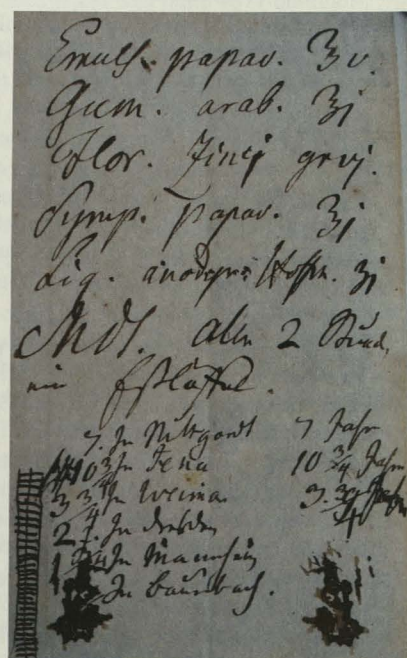 Emuls. papav. ℥v.
Gum. arab. ʒj
Flor. Zinci grvj.
Syrup. papav. ℥j
Liq. anodyni Hoffm. ʒj
MDS. alle 2 Stund.
ein Eßlöffel.
7. In Stuttgardt 7 Jahr
10 3/4 In Jena 10 3/4 Jahr
3 3/4 In Weimar 3. 3/4 Jahr
2 In Dresden
1 3/4 In Mannheim
In Bauerbach.